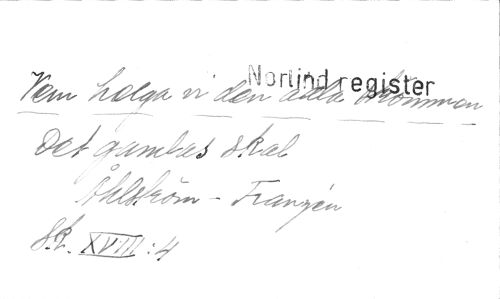 Norlind register
Vem helga vi den ädla strömmen
Det gamlas skål
Åhlström - Franzén
Sk. XVIII:4